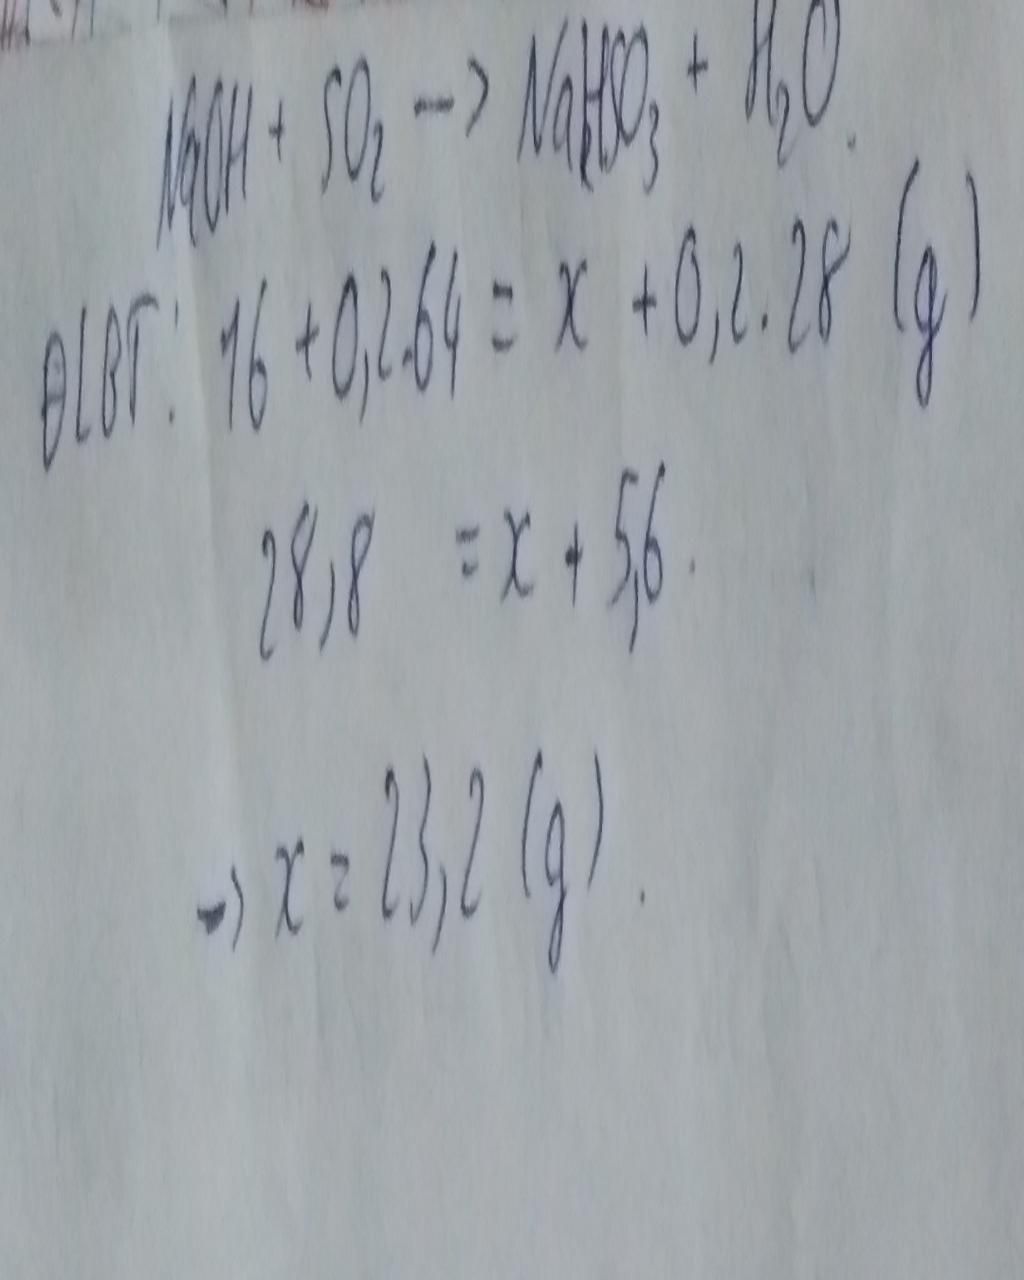 NaOH + SO₂ -> NaHSO₃ + H₂O.
ĐLBT: 16 + 0,2.64 = x + 0,2.28 (g)
28,8 = x + 5,6.
-> x = 23,2 (g).